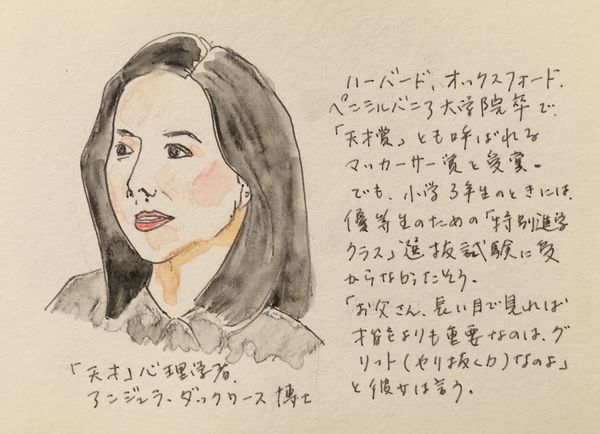 ハーバード、オックスフォード、
ペンシルバニア大学院卒で、
「天才賞」とも呼ばれる
マッカーサー賞を受賞。
でも、小学3年生のときには、
優等生のための「特別進学
クラス」選抜試験に受
からなかったそう。
「お父さん、長い目で見れば
才能よりも重要なのは、グ
リット(やり抜く力)なのよ」
と彼女は言う。
「天才」心理学者、
アンジェラ・ダックワース博士